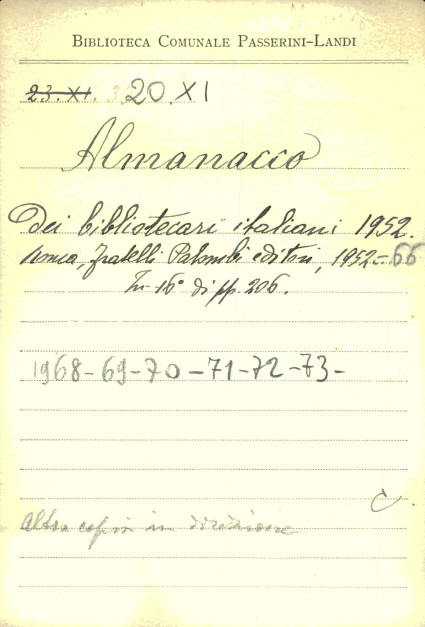 BIBLIOTECA COMUNALE PASSERINI-LANDI
23.XI. 20.XI
Almanacco
Dei bibliotecari italiani 1952.
Roma, Fratelli Palombi editori, 1952-66
In-16° di pp. 206.
1968-69-70-71-72-73-
C
Altra copia in direzione